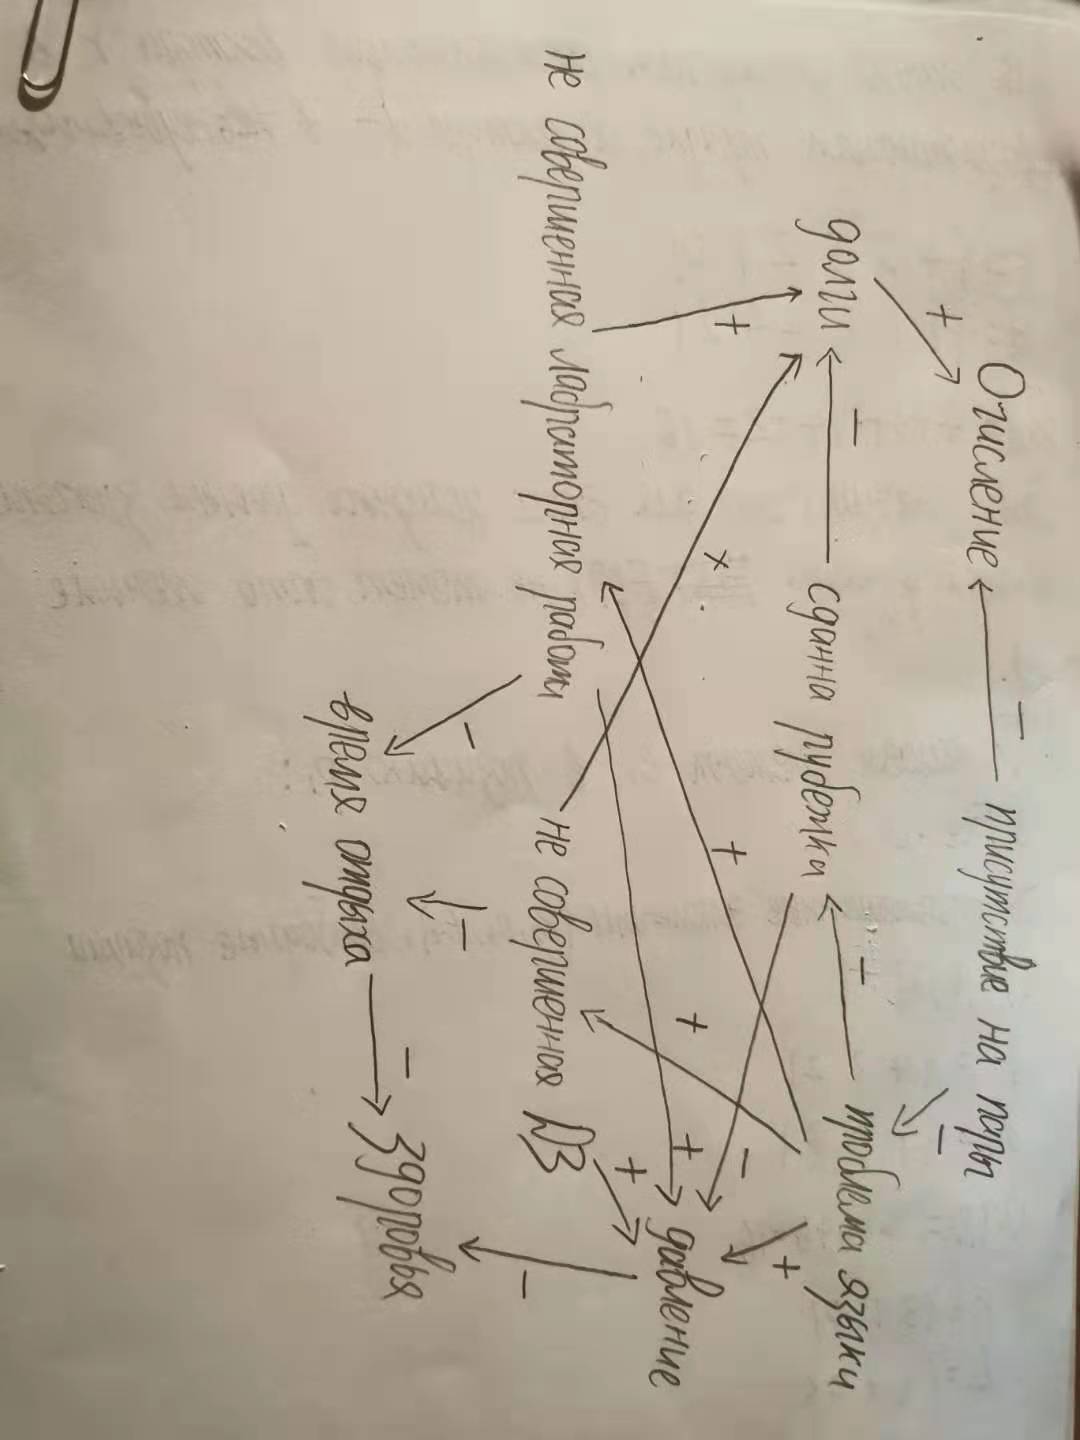 Очисление
присутствие на пары
долги
сданна рубежки
проблема языки
давление
не совершенная лабораторная работы
не совершенная ДЗ
время отдыха
Здоровья
+
-
-
+
-
+
+
+
+
-
+
+
+
-
-
-
-